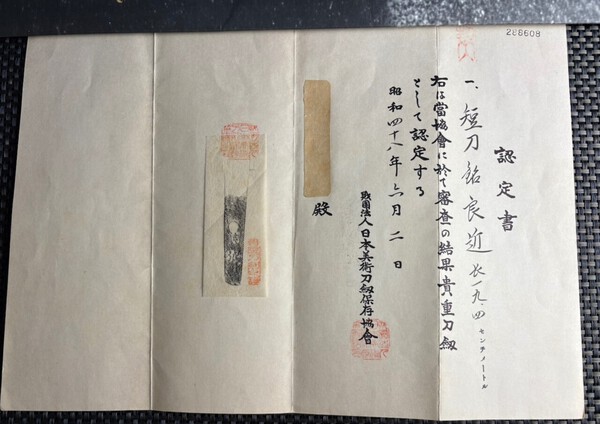 288608
認定書
一、短刀 銘 良近 長一九・四センチメートル
右は當協會に於て審査の結果貴重刀剱
として認定する
昭和四十八年六月二日
殿
財團法人日本美術刀剱保存協會